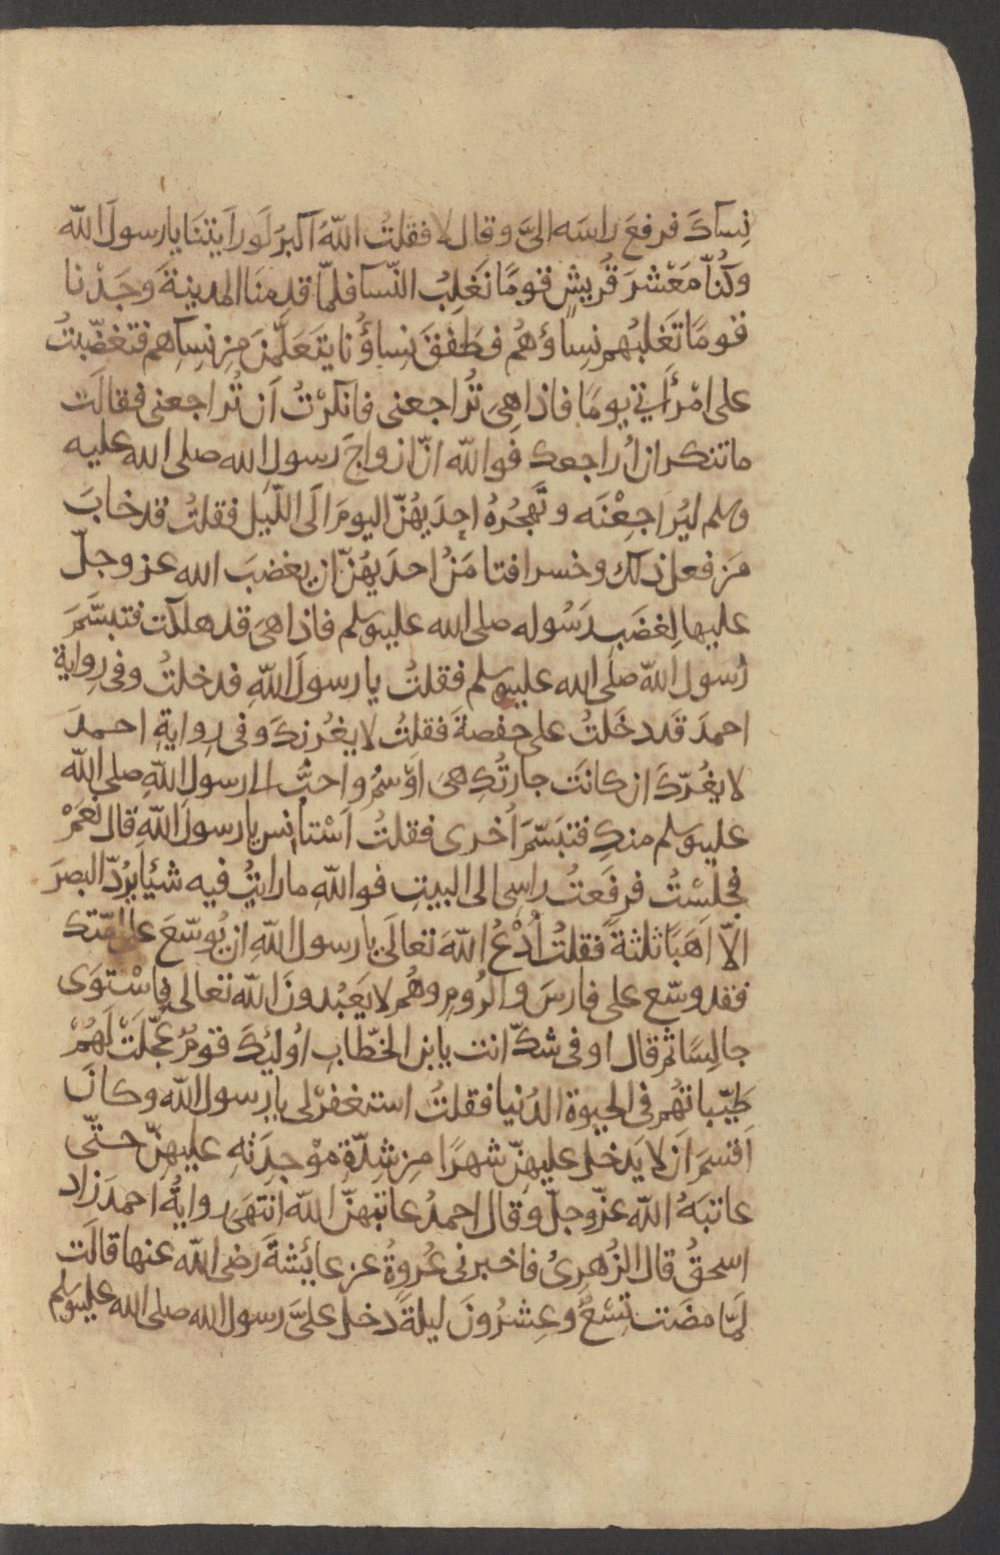 نِسآكَ فرفعَ راسَه اليَّ وقال لا فقلتُ اللّهُ اَكبرُ لَو رَايتنَا يا رسولَ اللّه
وكُنّا مَعْشرَ قُريشٍ قومًا نَغلِبُ النّسآ فلمّا قدِمنَا المدينةَ وَجَدْنا
قومًا تَغلبُهم نِساؤهُم فطَفقَ نِساؤُنا يتَعَلّمنَ مِن نِسآهم فتغضّبتُ
على امْرأتي يومًا فاذا هىَ تُراجعنى فانكرْتُ اَن تُراجعنى فقالَت
ما تنكر ان اُراجعك فَواللّه انّ ازواجَ رَسولِ الله صلى الله عليه
وسلم ليُراجِعْنَه وتَهجُرُهُ احِدَيهُنّ اليومَ الَى اللّيل فقلتُ قد خابَ
مَن فعل ذلك وخسر افتامَنُ احدَيهُنّ ان يغضبَ الله عز وجلّ
عليها لِغضَبِ رَسُوله صلى الله عليه وسلم فاذا هىَ قد هلكت فتبسَّمَ
رسول اللّه صلى الله عليه وسلم فقلتُ يا رسولَ اللّهِ فدخلتُ وفى رِواية
احمدَ قَد دخَلتُ على حفصةَ فقلتُ لا يغُرنكِ وفى رِوايةِ احمدَ
لا يغُرّكَ ان كانَت جارتُكِ هىَ اوْسَمُ واحبُّ الى رسولِ اللّهِ صلى اللّه
عليه وسلم منكِ فتبَسّمَ اُخرى فقلتُ اَسْتأنس يا رسولَ اللّهِ قال نَعَمْ
فجلَسْتُ فرفَعتُ راسِى الى البيتِ فواللّهِ ما رايتُ فيه شيًا يرُدّ البصرَ
الاّ اَهَبًا ثلثةً فقلتُ اُدْعُ اللّهَ تعالَى يا رسولَ اللّهِ ان يُوسّعَ على امّتك
فقد وسّع على فارسَ والرُومِ وهُم لا يَعبُدونَ اللّه تعالى فاسْتوَى
جالِسًا ثم قال اوفى شكّ انت يا بن الخَطّابِ اُولئِكَ قومٌ عُجّلَتْ لَهُمْ
طَيّباتهُم فى الحيوةِ الدُنيا فقلتُ استغفرْ لى يا رسولَ اللّه وكانَ
اقسَمَ اَن لا يَدخلَ عليهِنّ شهرًا مِن شِدّةِ مَوْجِدَتهِ عليهِنّ حتّى
عاتبَهُ اللّه عزّ وجلّ وقال احمدُ عاتبهنّ اللّه انتهَى روايةُ احمدَ زاد
اسحقُ قال الزُهرِىُ فاخبرنى عُروةُ عن عائِشةَ رضى اللّه عنها قالَت
لَمّا مضَت تِسْعٌ وعِشرُونَ ليلةً دخلَ علىَّ رسول الله صلى الله عليه وسلم